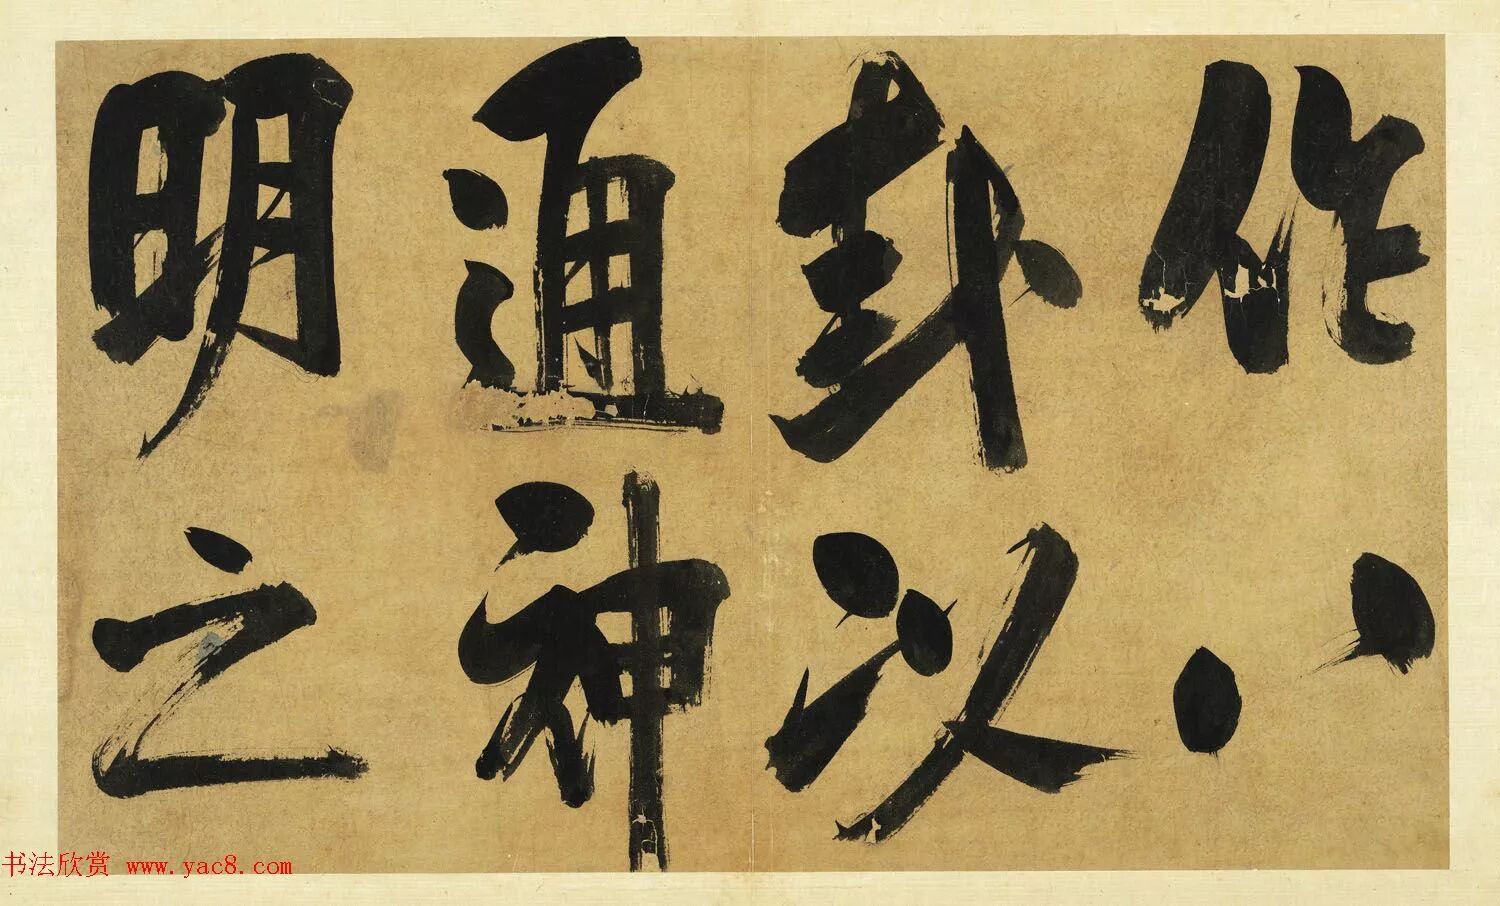 作八
卦以
通神
明之
书法欣赏 www.yac8.com